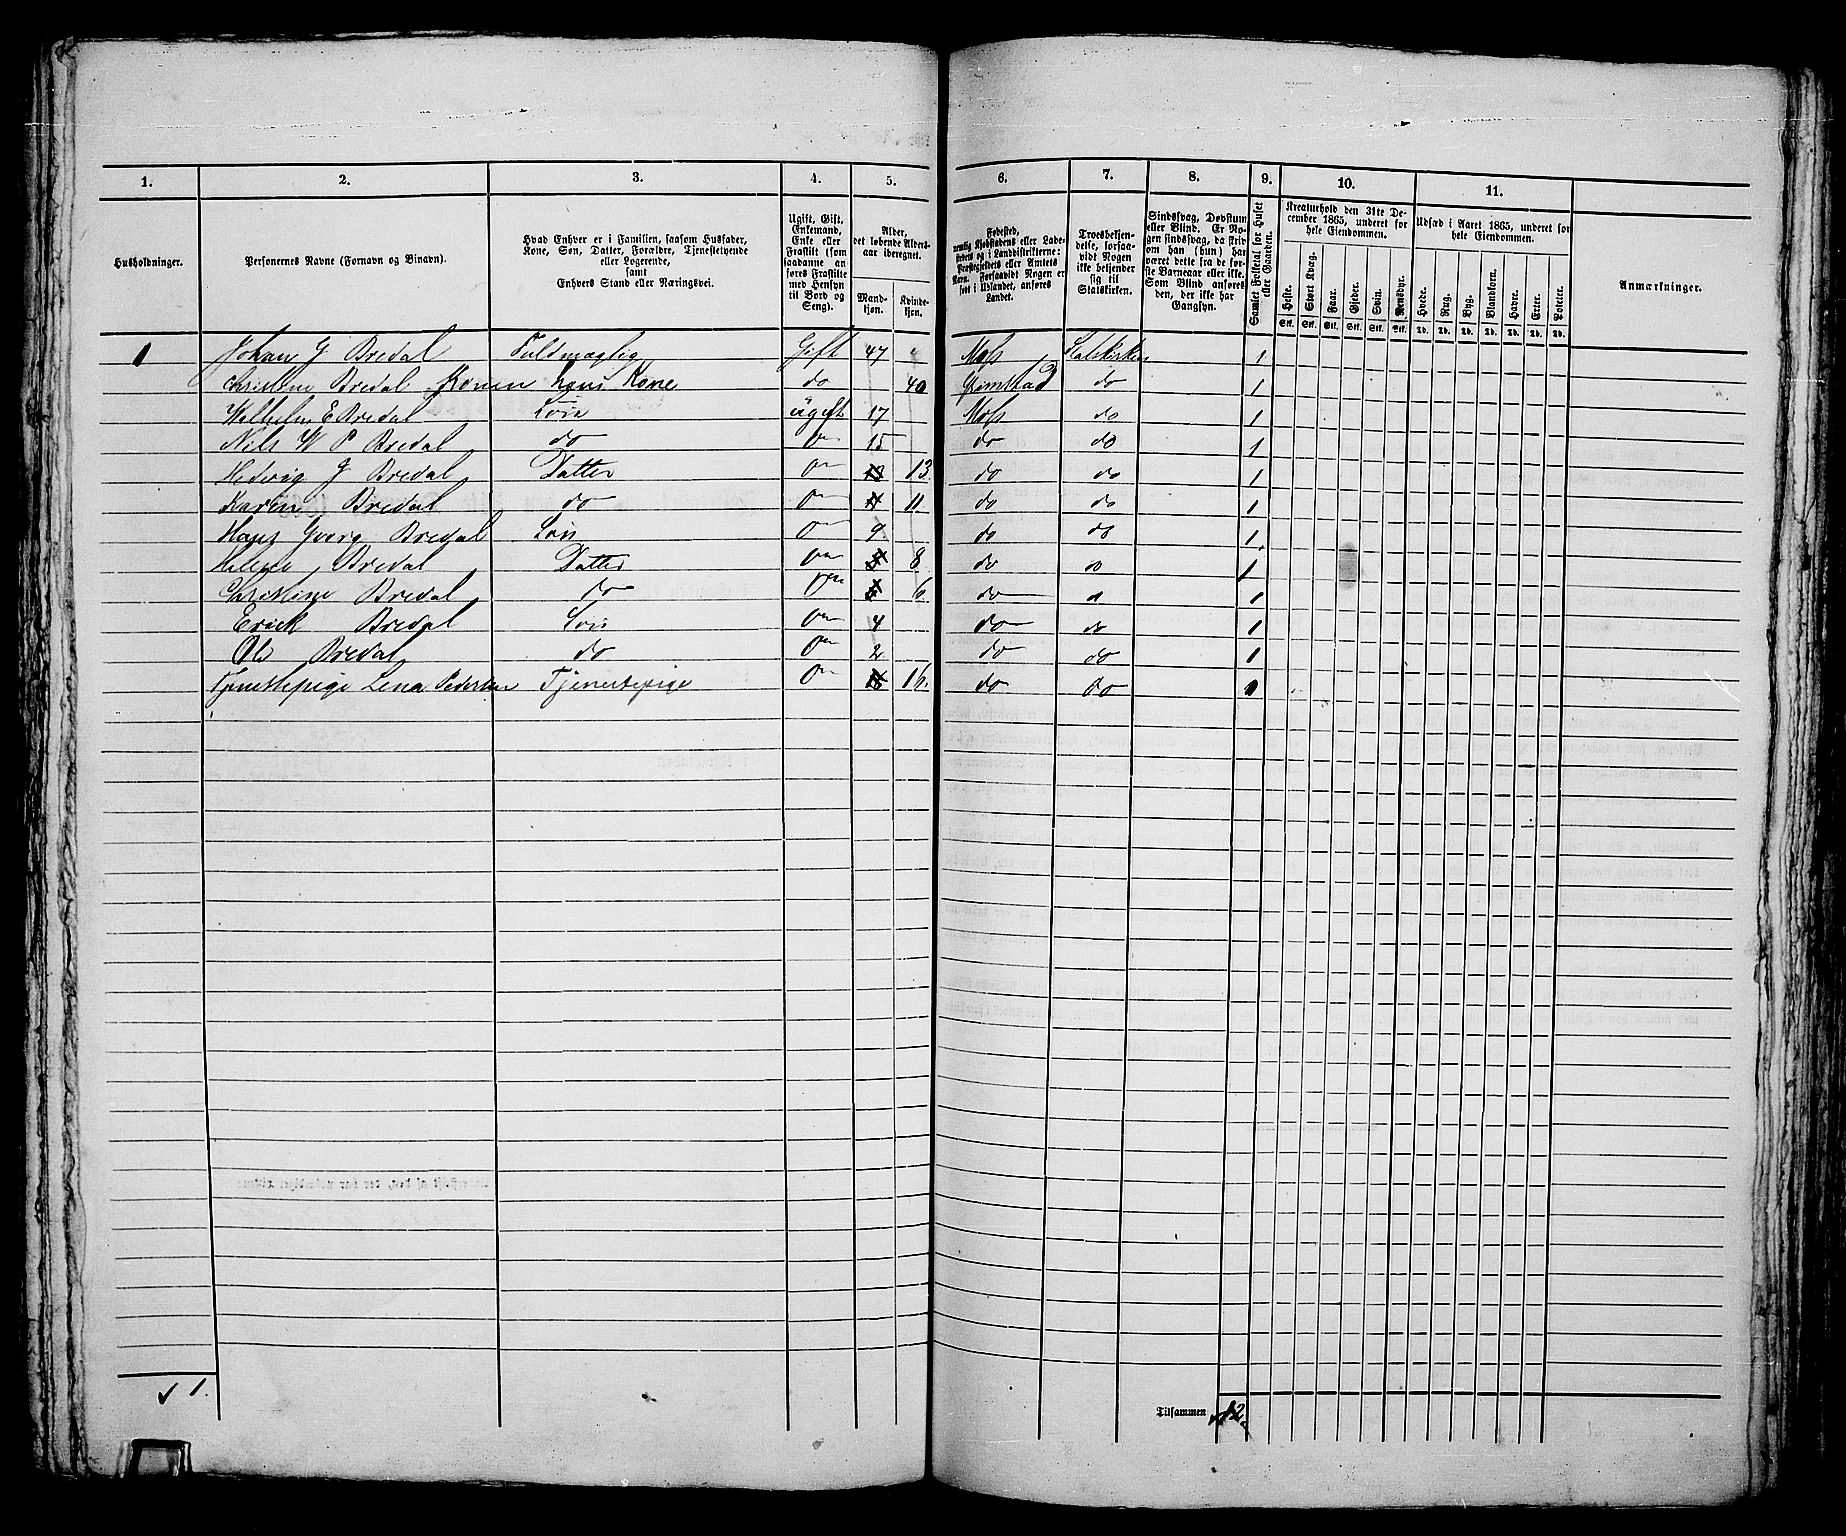 1. 2. 3. 4. 5. 6. 7. 8. 9. 10. 11.
Husholdninger.
Personernes Navne (Fornavn og Binavn).
Hvad Enhver er i Familien, saasom Husfader, Kone, Søn, Datter, Forældre, Tjenestetyende eller Logerende, samt Enhvers Stand eller Næringsvei.
Ugift, Gift, Enkemand, Enke eller Fraskilt (som saadanne anføres Fraskilte med Hensyn til Bord og Seng).
Alder, det løbende Aldersaar iberegnet.
Mandkjøn. Kvindekjøn.
Fødested, nemlig Kjøbstadens eller Ladestedets og i Landdistrikterne: Præstegjeldets eller Amtets Navn. Forsaavidt Nogen er født i Udlandet, anføres Landet.
Troesbekjendelse, forsaavidt Nogen ikke bekjender sig til Statskirken.
Sindssvag, Døvstum eller Blind. Er Nogen sindssvag, da skriv om han (hun) har været dette fra de første Barneaar eller ikke. Som Blind anføres den, der ikke har Gangsyn.
Samlet Folketal for Huset eller Gaarden.
Kreaturhold den 31te December 1865, underet for hele Eiendommen.
Heste. Stort Kvæg. Faar. Gjeder. Svin. Rensdyr.
Stk. Stk. Stk. Stk. Stk. Stk.
Udsæd i Aaret 1865, underet for hele Eiendommen.
Hvede. Rug. Byg. Blandkorn. Havre. Erter. Poteter.
Td. Td. Td. Td. Td. Td. Td.
Anmærkninger.
1 Johan G Bredal Fuldmægtig Gift 47 Moss Statskirken 1
Christine Bredal Konen hans Kone do 40 Grimstad do 1
Wilhelm E Bredal Søn ugift 17 Moss do 1
Nils W P Bredal do 15 do do 1
Hedvig J Bredal Datter 13 13 do do 1
Karen Bredal do 11 11 do do 1
Hans Georg Bredal Søn 9 do do 1
Helene Bredal Datter 8 do do 1
Christine Bredal do 6 do do 1
Erick Bredal Søn 4 do do 1
Ole Bredal do 2 do do 1
Tjenestepige Lena Pedersen Tjenestepige 16 16 do do 1
√ 1.
Tilsammen 12